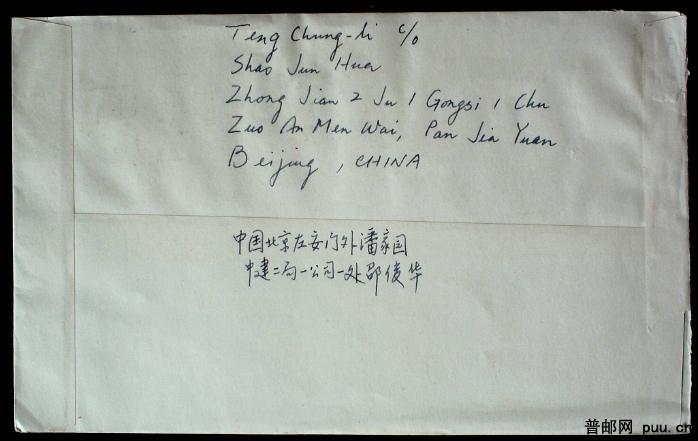 Teng Chung-li c/o
Shao Jun Hua
Zhong Jian 2 Ju 1 Gongsi 1 Chu
Zuo An Men Wai, Pan Jia Yuan
Beijing, CHINA
中国北京左安门外潘家园
中建二局一公司一处邵俊华
普邮网 puu.cn